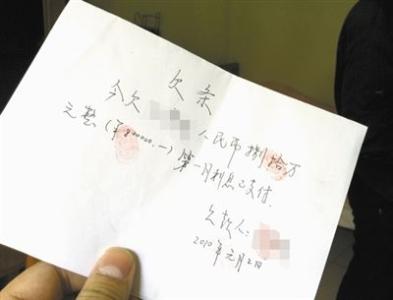 欠条
今欠 人民币捌拾万
元整(¥800000.一)第一月利息已交付.
欠款人:
2010年元月2日